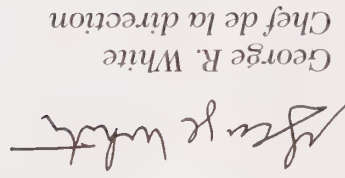 George White
George R. White
Chef de la direction